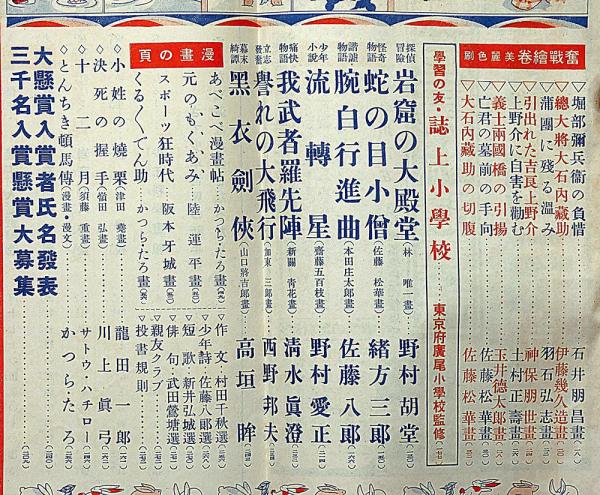 奮戰繪卷 美麗色刷
◇堀部彌兵衞の負惜 石井朋昌畫
總大將大石內藏助 伊藤幾久造畫
◇蒲團に殘る溫み 羽石弘志畫
◇引出れた吉良上野介 神保朋世畫
◇上野介に自害を勸む 土村正壽畫
◇義士兩國橋の引揚 玉井德太郎畫
◇亡君の墓前の手向 佐藤松華畫
◇大石內藏助の切腹 佐藤松華畫
學習の友・誌上小學校 東京府廣尾小學校監修
探偵冒險 岩窟の大殿堂 (林唯一畫) 野村胡堂
怪奇物語 蛇の目小僧 (佐藤松華畫) 緒方三郎
諧謔物語 腕白行進曲 (本田庄太郎畫) 佐藤八郎
少年小說 流轉星 (齋藤五百枝畫) 野村愛正
痛快物語 我武者羅先陣 (新關青花畫) 淸水眞澄
立志發奮 譽れの大飛行 (加東三郎畫) 西野邦夫
幕末綺譚 黑衣劍俠 (山口將吉郎畫) 高垣眸
漫畫の頁
あべこべ漫畫帖 かつら・たろ畫
元のもくあみ 陸連平畫
スポーツ狂時代 阪本牙城畫
くるくでん助 かつら・たろ畫
▽作文 村田千秋選
▽少年詩 佐藤八郎選
▽短歌 新井弘城選
▽俳句 武田鶯塘選
▽親友クラブ
▽投書規則
◇小姓の燒栗 (津田堯畫) 龍田一郎
◇決死の握手 (嶺田弘畫) 川上眞弓
◇十二月 (須藤重畫) サトウ・ハチロー
◇とんちき頓馬傳 (漫畫・漫文) かつら・たろ
大懸賞入賞者氏名發表
三千名入賞懸賞大募集